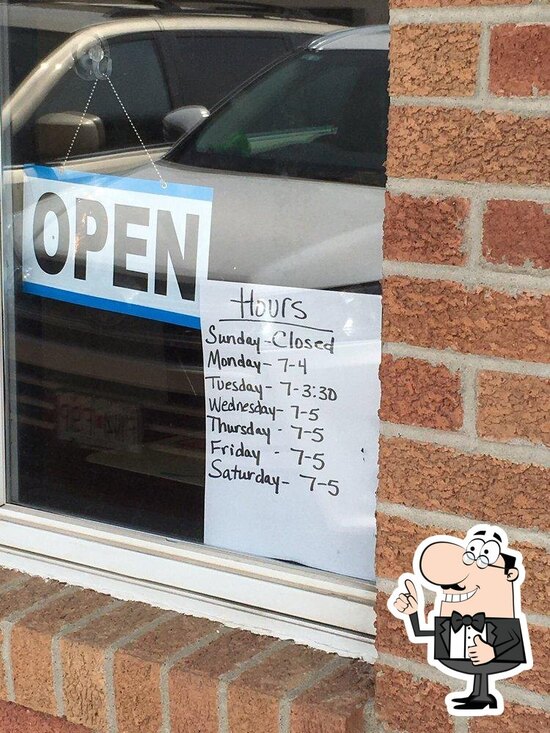 OPEN
Hours
Sunday-Closed
Monday- 7-4
Tuesday- 7-3:30
Wednesday- 7-5
Thursday - 7-5
Friday - 7-5
Saturday- 7-5